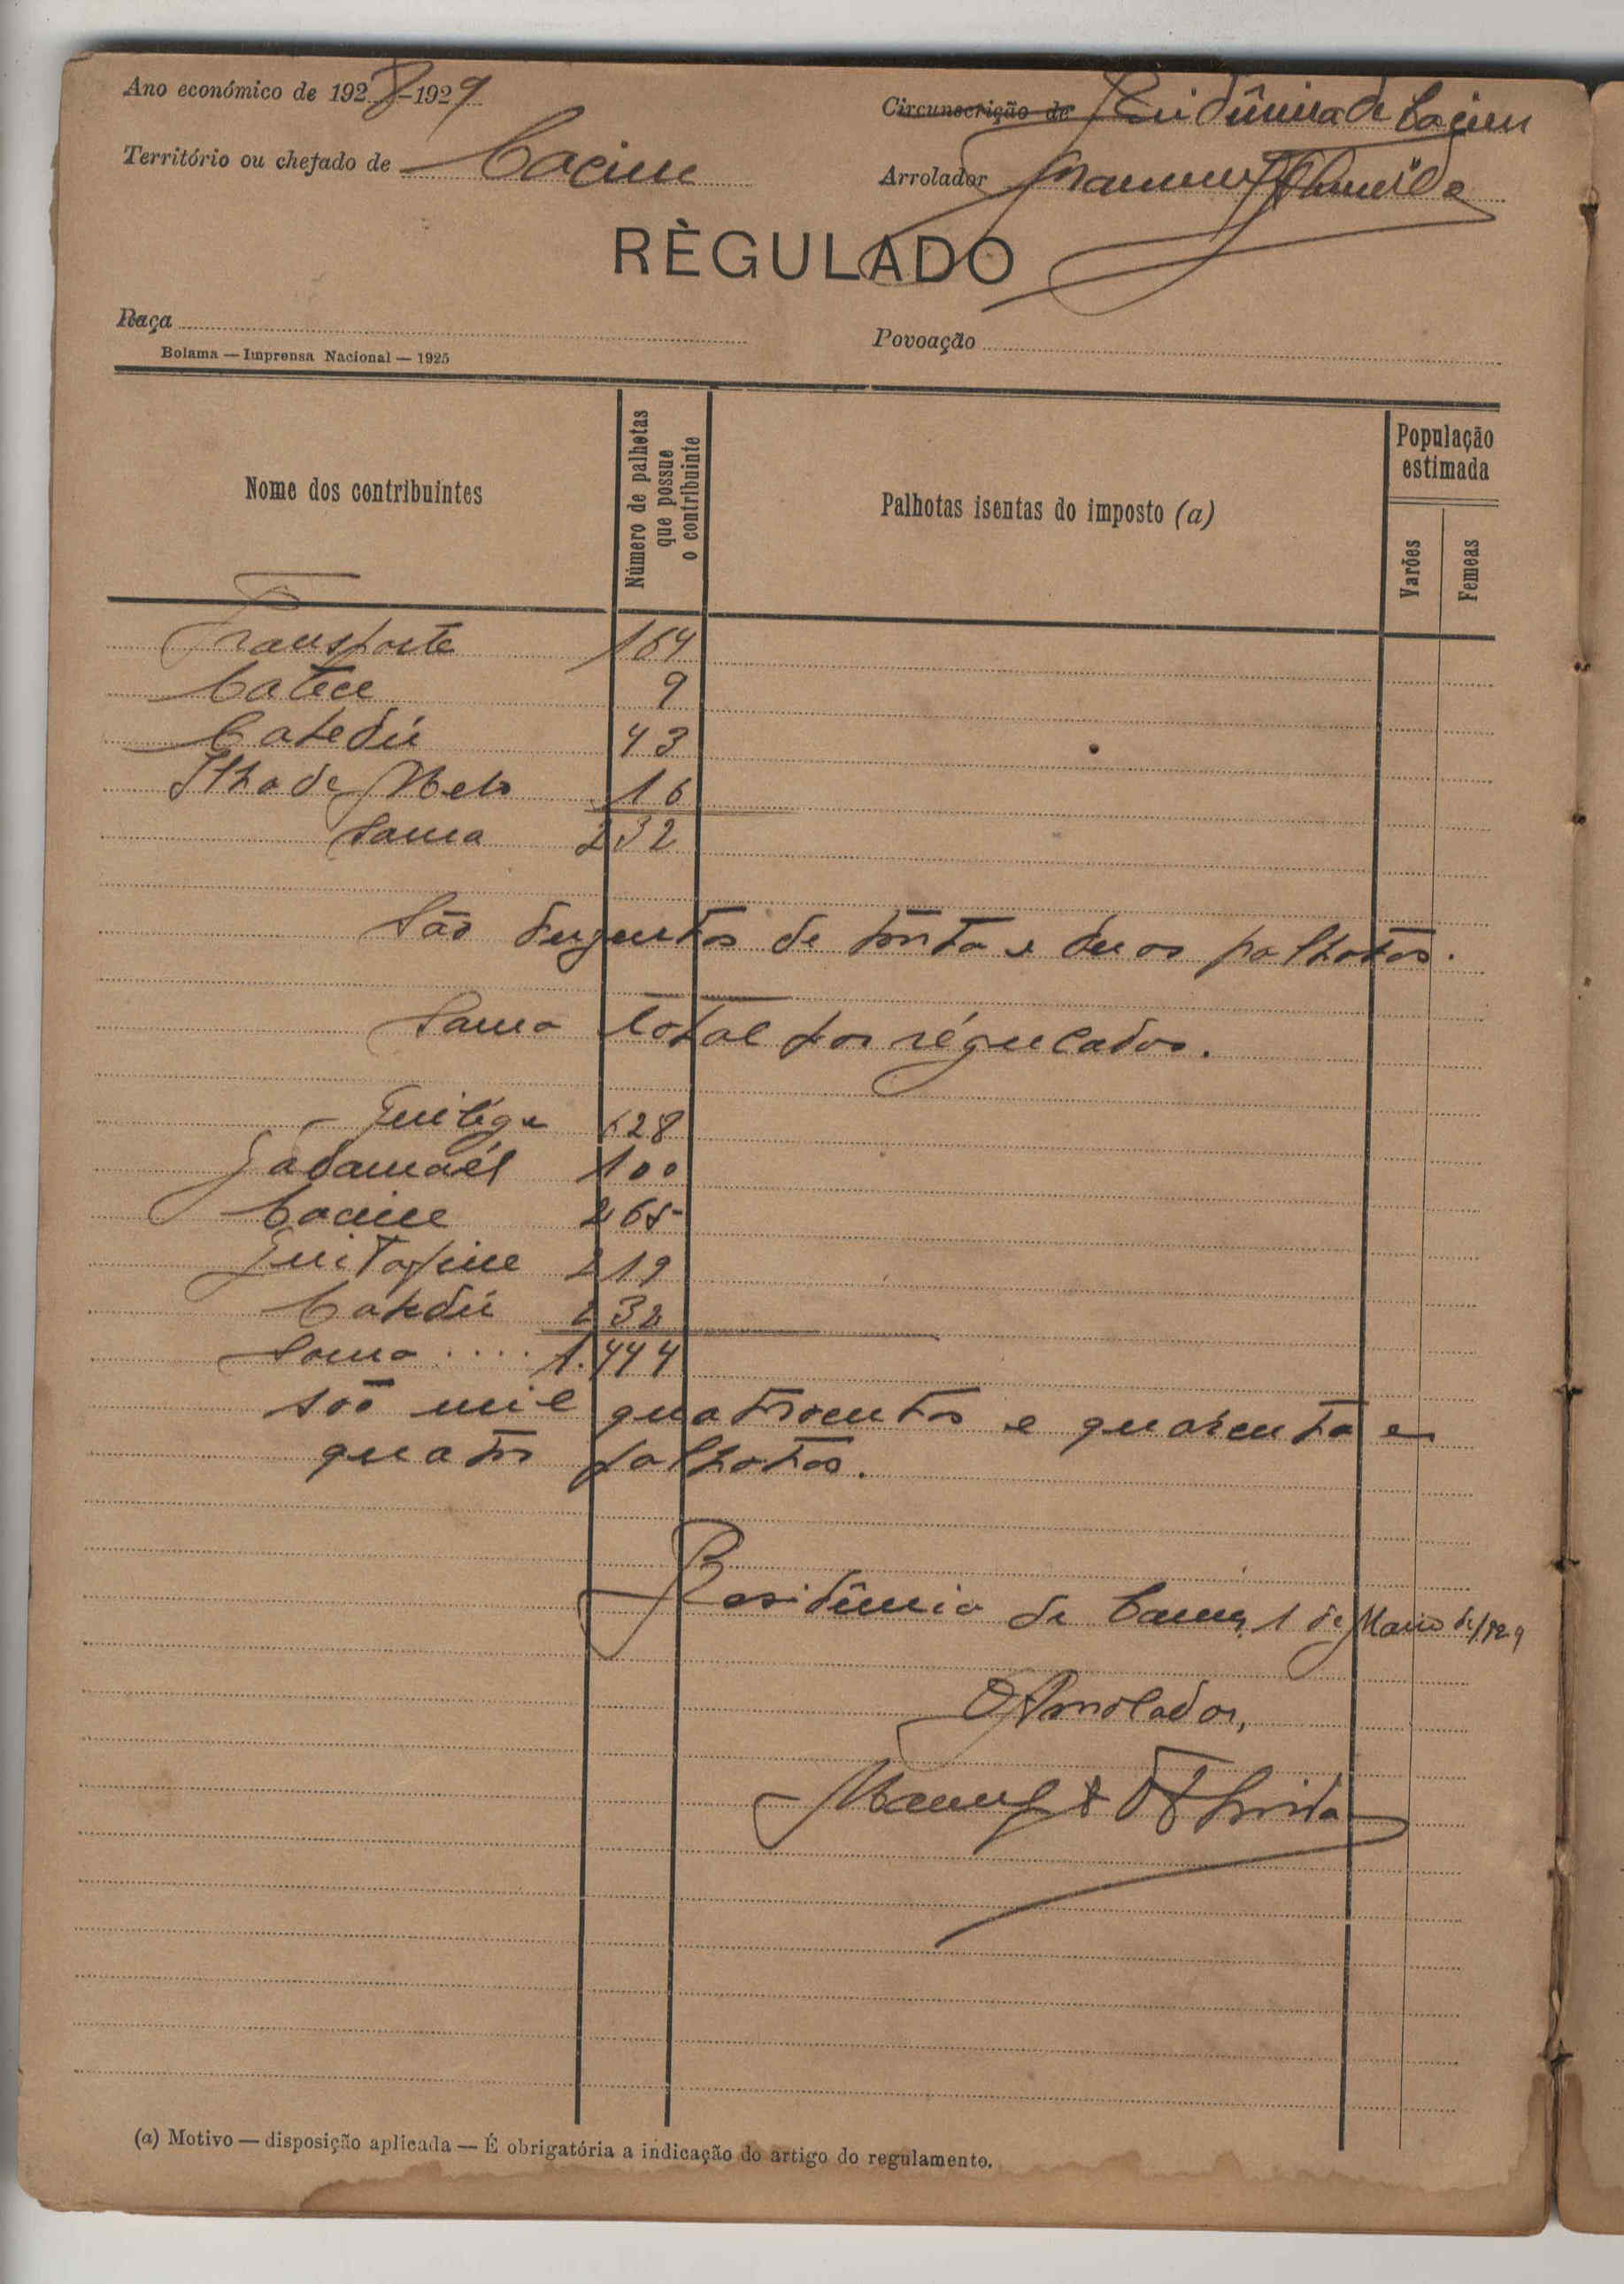 Ano económico de 1928-1929
Circunscrição de Residência de Cacine
Território ou chefado de Cacine
Arrolador Manuel d'Almeida
RÈGULADO
Raça
Povoação
Bolama — Imprensa Nacional — 1925
Nome dos contribuintes
Número de palhetas que possue o contribuinte
Palhotas isentas do imposto (a)
População estimada
Varões
Femeas
Transporte 164
Catece 9
Catedú 43
Ilha de Melo 16
Soma 232
São duzentos de trinta e duas palhotas.
Soma total dos régulados.
Guilége 628
Gadamaél 100
Cacine 265
Guitafine 219
Catedú 232
Soma .... 1.444
são mil quatrocentos e quarenta e
quatro palhotas.
Residência de Cacine, 1 de Maio de 1929
O Arrolador,
Manuel
(a) Motivo — disposição aplicada — É obrigatória a indicação do artigo do regulamento.